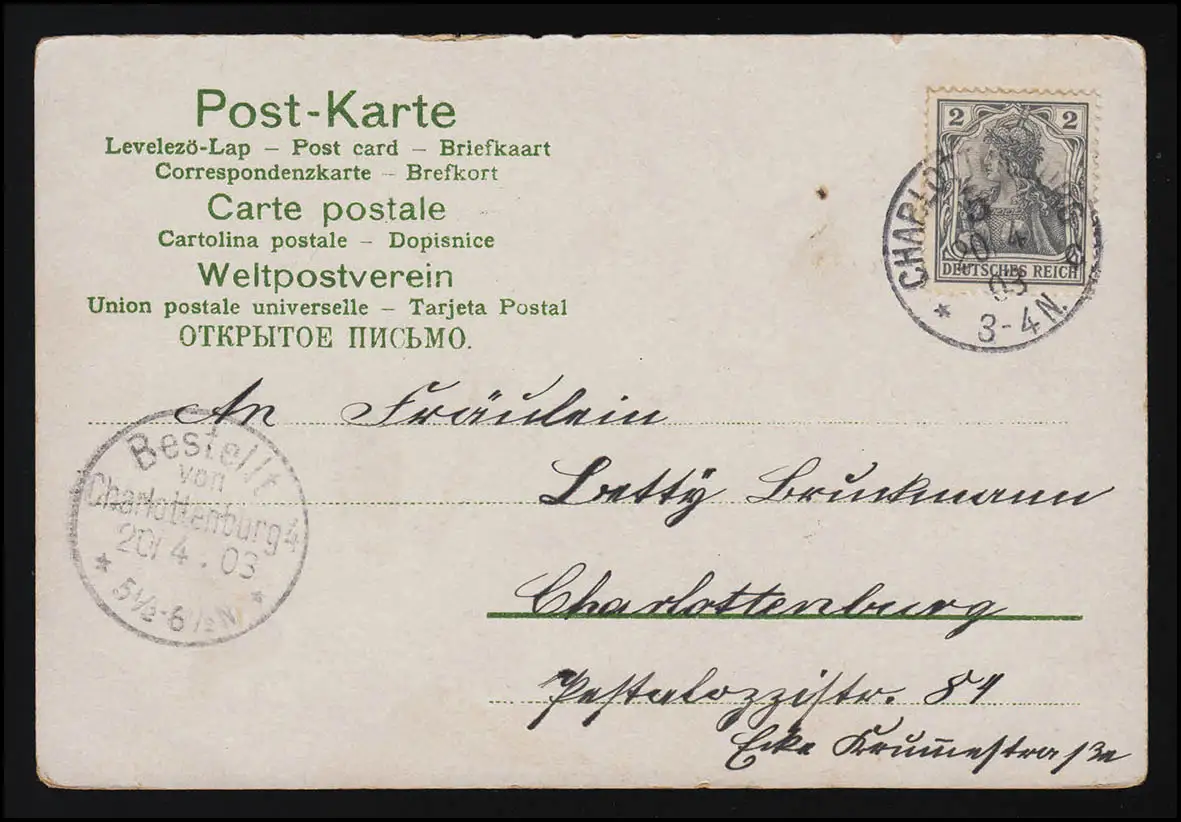 Post-Karte
Levelezö-Lap – Post card – Briefkaart
Correspondenzkarte – Brefkort
Carte postale
Cartolina postale – Dopisnice
Weltpostverein
Union postale universelle – Tarjeta Postal
ОТКРЫТОЕ ПИСЬМО.
2 2
DEUTSCHES REICH
20 4
03
* 3-4 N.
An Fräulein
Betty Bruckmann
Charlottenburg
Pestalozzistr.
Ecke Krum̅estraße
Bestellt
von
Charlottenburg 4
20/4.03
* 5½-6½N *